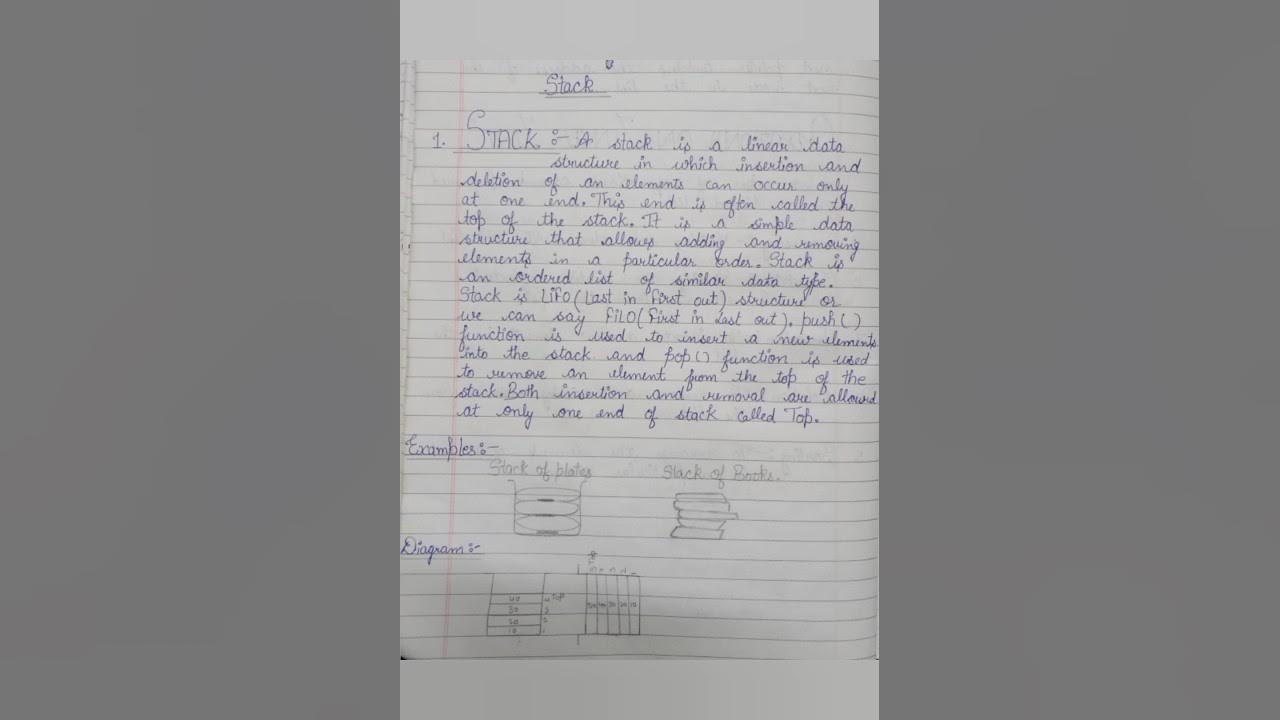 Stack
1. STACK :- A stack is a linear data
structure in which insertion and
deletion of an elements can occur only
at one end. This end is often called the
top of the stack. It is a simple data
structure that allows adding and removing
elements in a particular order. Stack is
an ordered list of similar data type.
Stack is LIFO (Last in first out) structure or
we can say FILO (first in Last out). push()
function is used to insert a new elements
into the stack and pop() function is used
to remove an element from the top of the
stack. Both insertion and removal are allowed
at only one end of stack called Top.
Examples :-
Stack of plates Stack of Books.
Diagram :-
Top
5 4 3 2 1
40 4 Top
30 3
20 2
10 1
50 40 30 20 10